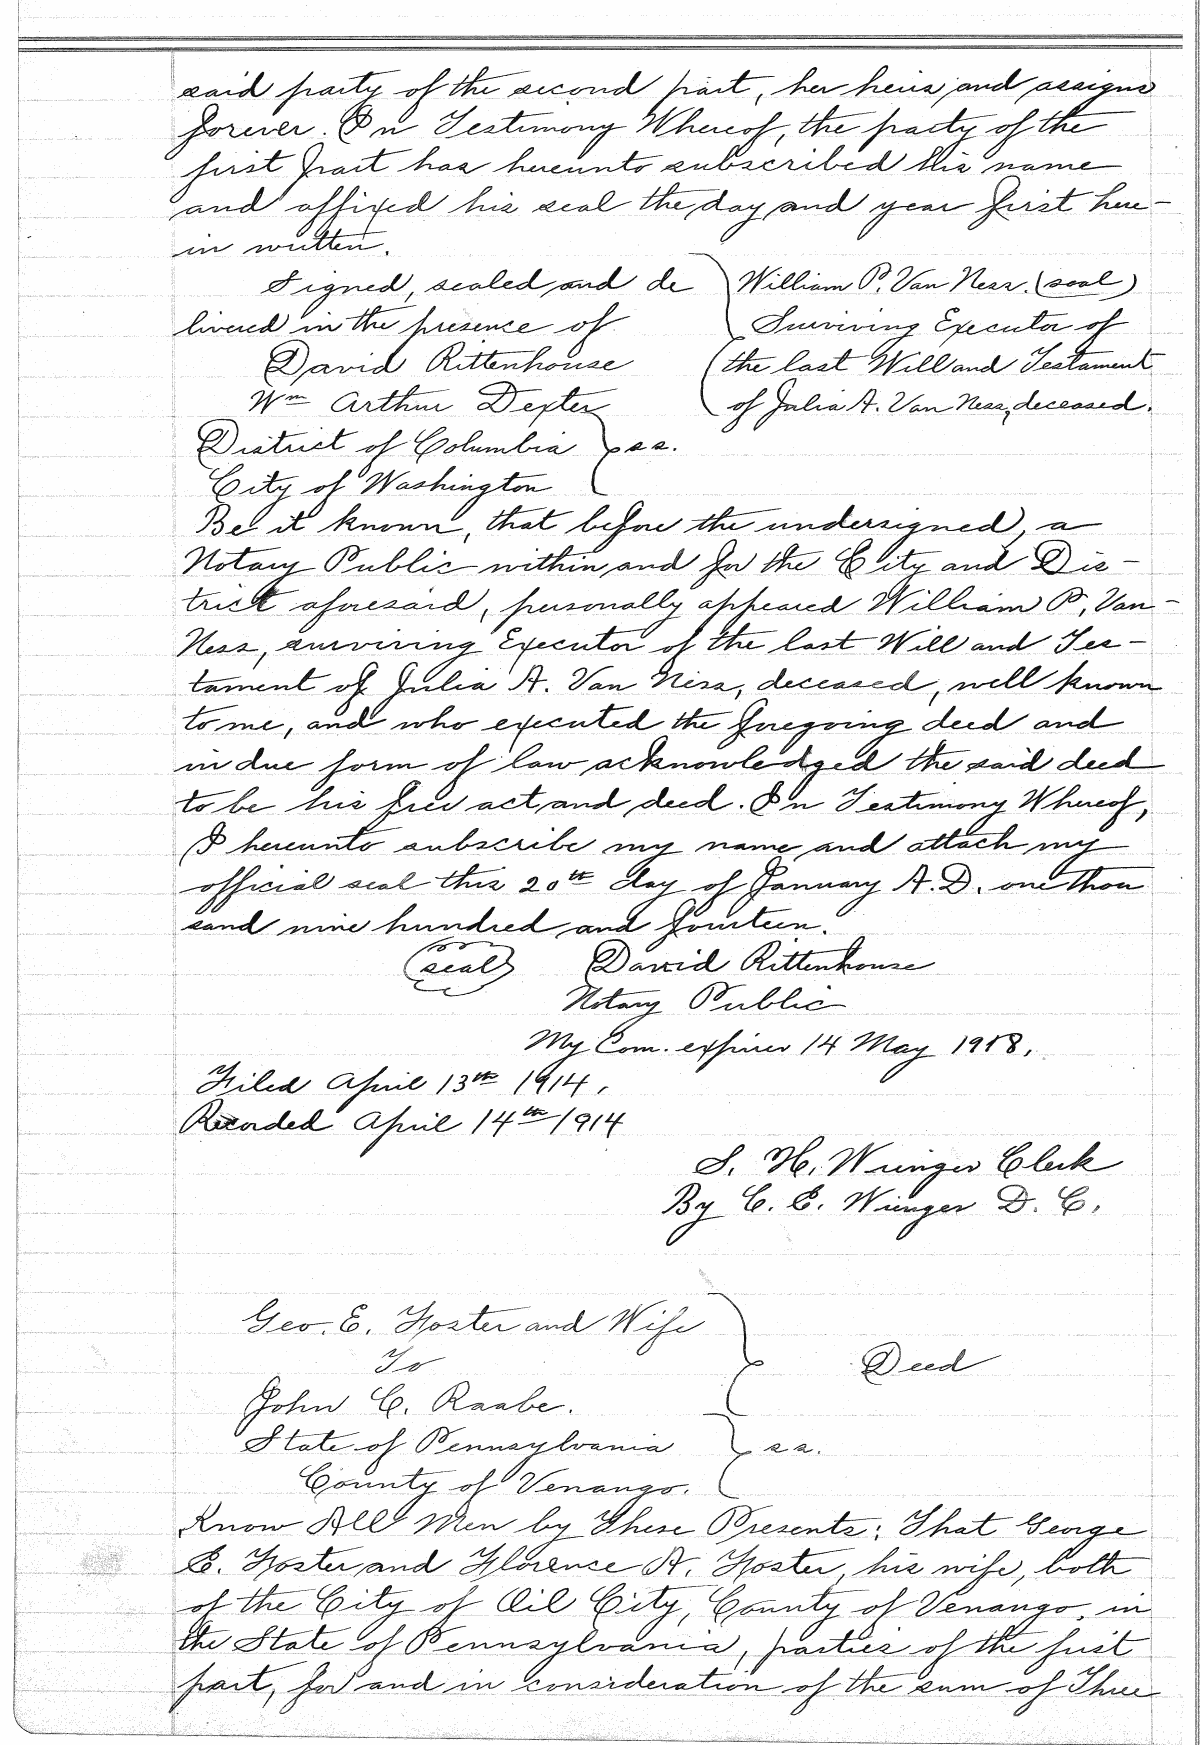 said party of the second part, her heirs and assigns
forever. In Testimony Whereof, the party of the
first part has hereunto subscribed his name
and affixed his seal the day and year first here-
in written.
Signed, sealed and de
livered in the presence of
David Rittenhouse
Wm Arthur Dexter
William P. Van Ness. (seal)
Surviving Executor of
the last Will and Testament
of Julia A. Van Ness, deceased.
District of Columbia } ss.
City of Washington
Be it known, that before the undersigned, a
Notary Public within and for the City and Dis-
trict aforesaid, personally appeared William P. Van-
Ness, surviving Executor of the last Will and Tes-
tament of Julia A. Van Ness, deceased, well known
to me, and who executed the foregoing deed and
in due form of law acknowledged the said deed
to be his free act and deed. In Testimony Whereof,
I hereunto subscribe my name and attach my
official seal this 20th day of January A.D. one thou
sand nine hundred and fourteen.
(seal) David Rittenhouse
Notary Public
My Com. expires 14 May 1918.
Filed April 13th 1914.
Recorded April 14th 1914
S. H. Clerk
By C. E. Winger D. C.
Geo. E. Foster and Wife
To
John C. Raabe.
} Deed
State of Pennsylvania } ss.
County of Venango.
Know All Men by These Presents: That George
E. Foster and Florence A. Foster, his wife, both
of the City of Oil City, County of Venango, in
the State of Pennsylvania, parties of the first
part, for and in consideration of the sum of Three